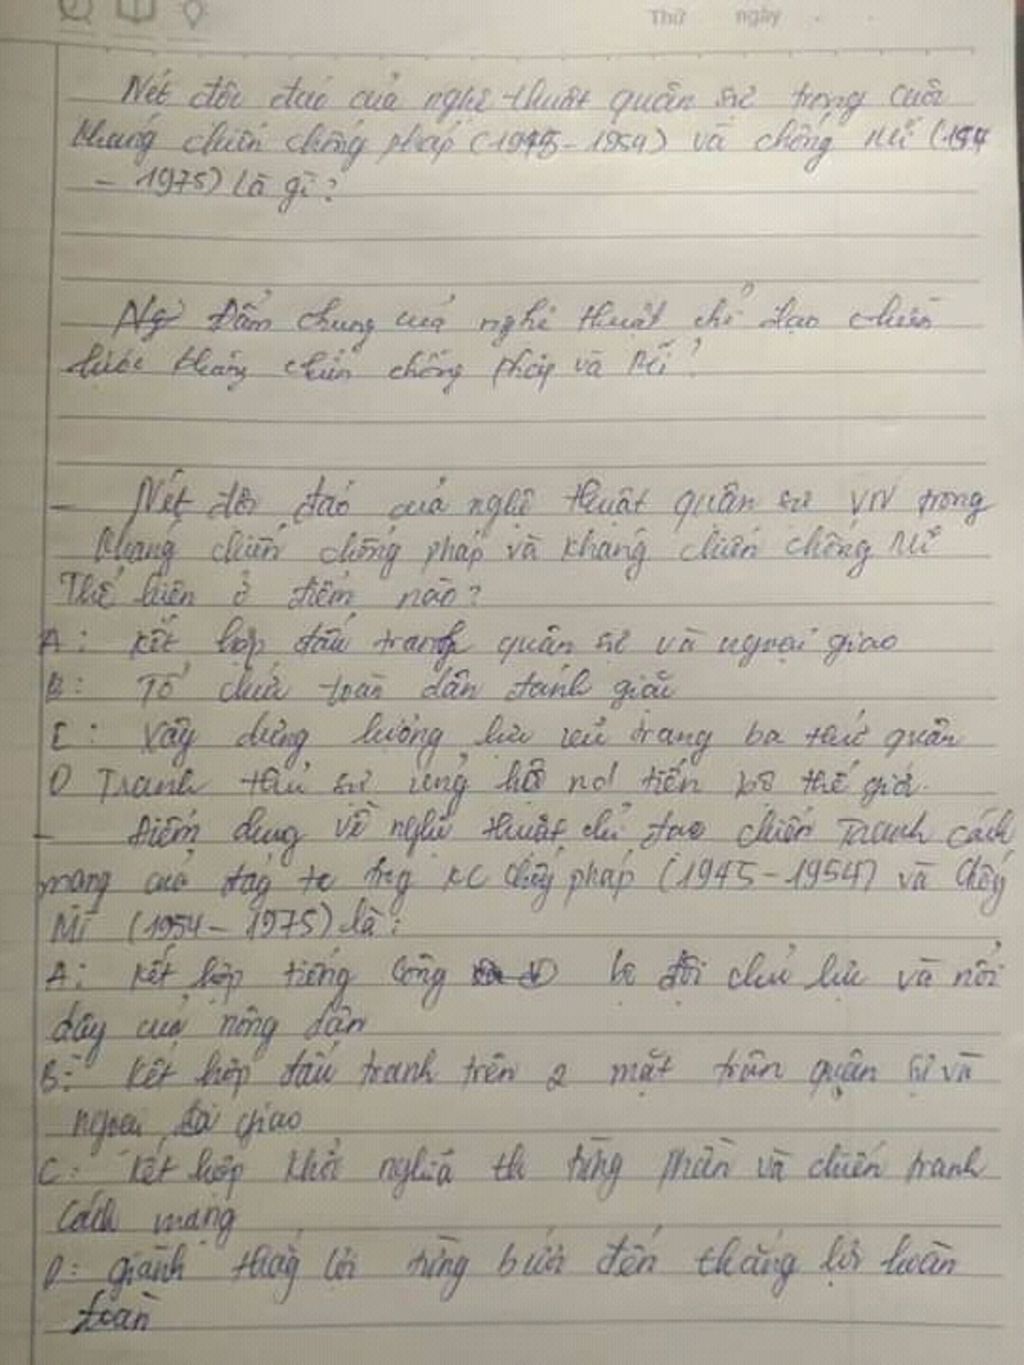 Thứ ngày
Nét độc đáo của nghệ thuật quân sự trong cuộc
kháng chiến chống pháp (1945-1954) và chống Mĩ (154
- 1975) là gì?
Điểm chung của nghệ thuật chỉ đạo chiến
lược kháng chiến chống Pháp và Mĩ?
- Nét độc đáo của nghệ thuật quân sự VN trong
kháng chiến chống pháp và kháng chiến chống Mĩ
Thể hiện ở điểm nào?
A: kết hợp đấu tranh quân sự và ngoại giao
B: Tổ chức toàn dân đánh giặc
C: Xây dựng lượng lực vũ trang ba thứ quân
D Tranh thủ sự ủng hộ nd tiến bộ thế giới.
- điểm chung về nghệ thuật chỉ đạo chiến Tranh cách
mạng của đảg ta trg KC chống pháp (1945-1954) và chống
Mĩ (1954-1975) là:
A: kết hợp tiếng công bộ đội chủ lực và nổi
dậy của nông dân
B: kết hợp đấu tranh trên 2 mặt trận quân sự và
ngoại giao
C: kết hợp khởi nghĩa từng phần và chiến tranh
Cách mạng
D: giành thắg lợi từng bước đến thắng lợi hoàn
toàn